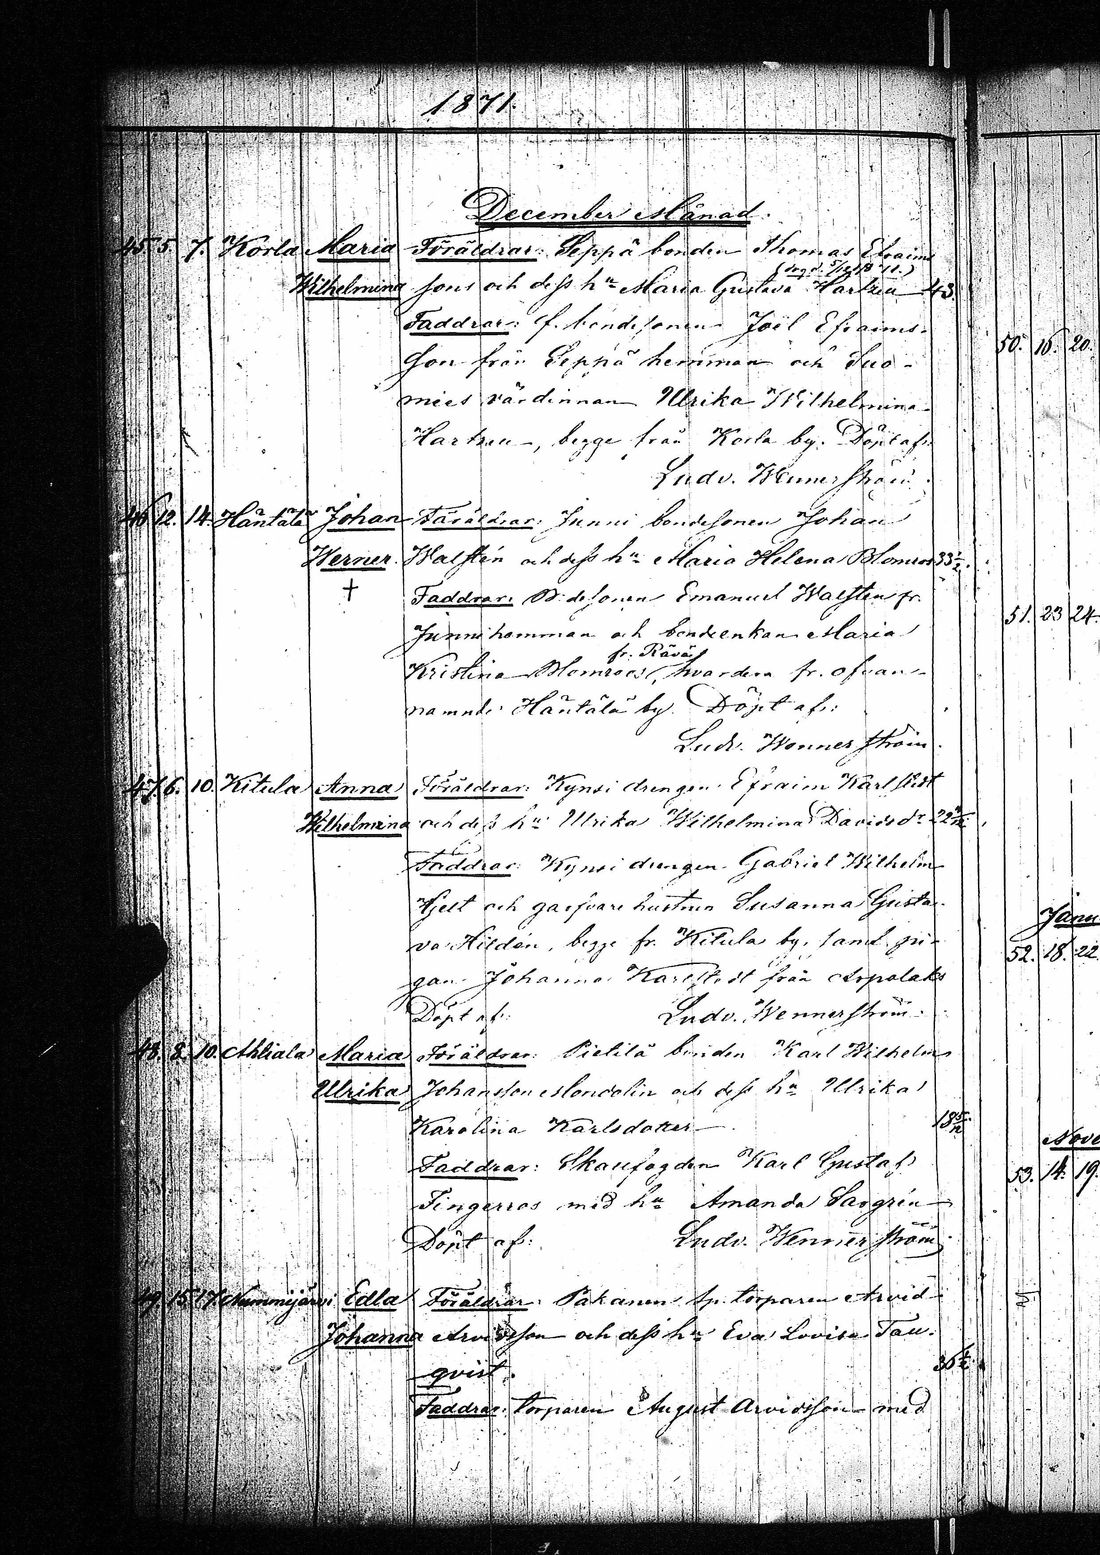 1871.
December Månad.
45. 5. 7. Korla Maria Föräldrar: Seppä bonden Thomas Efraims
Wilhelmina sons och dess hu Maria Gustava Hartzen 43.
Faddrar: f. bondesonen Joël Efraims-
son från Seppä hemman och Suo-
mies värdinnan Ulrika Wilhelmina
Hartzen, begge från Korla by. Döpt af:
Ludv. Wennerström.
46. 12. 14. Häntälä Johan Föräldrar: Junni bondesonen Johan
Werner. Walstén och dess hu Maria Helena Blomroos 33½.
† Faddrar: B:desonen Emanuel Walstén fr.
Junni hemman och bondeenkan Maria
fr. Rävä
Kristina Blomroos, hvardera fr. ofvan-
namnde Häntälä by. Döpt af:
Ludv. Wennerström.
47. 6. 10. Kitula Anna Föräldrar: Kynsi drengen Efraim Karlstedt
Wilhelmina och dess hu Ulrika Wilhelmina Davidsdr
Faddrar: Kynsi drengen Gabriel Wilhelm
Hjelt och garfvare hustrun Susanna Gusta-
va Hildén, begge fr. Kitula by, samt pi-
gan Johanna Karlstedt från Arpalaks
Döpt af: Ludv. Wennerström.
48. 8. 10. Ahtiala Maria Föräldrar: Pietilä bonden Karl Wilhelm
Ulrika Johansson Mondolin och dess hu Ulrika
Karolina Karlsdotter 18
Faddrar: Skaufogden Karl Gustaf
Tingerroos med hu Amanda Savgrén
Döpt af: Ludv. Wennerström.
49. 15. 17. Nummijärvi Edla Föräldrar: Pakanen tp. torparen Arvid
Johanna Arvidsson och dess hu Eva Lovisa Tau-
qvist. 36½
Faddrar: torparen August Arvidsson med
50. 16. 20.
51. 23 24.
Janu
52. 18. 22.
Nove
53. 14. 19.